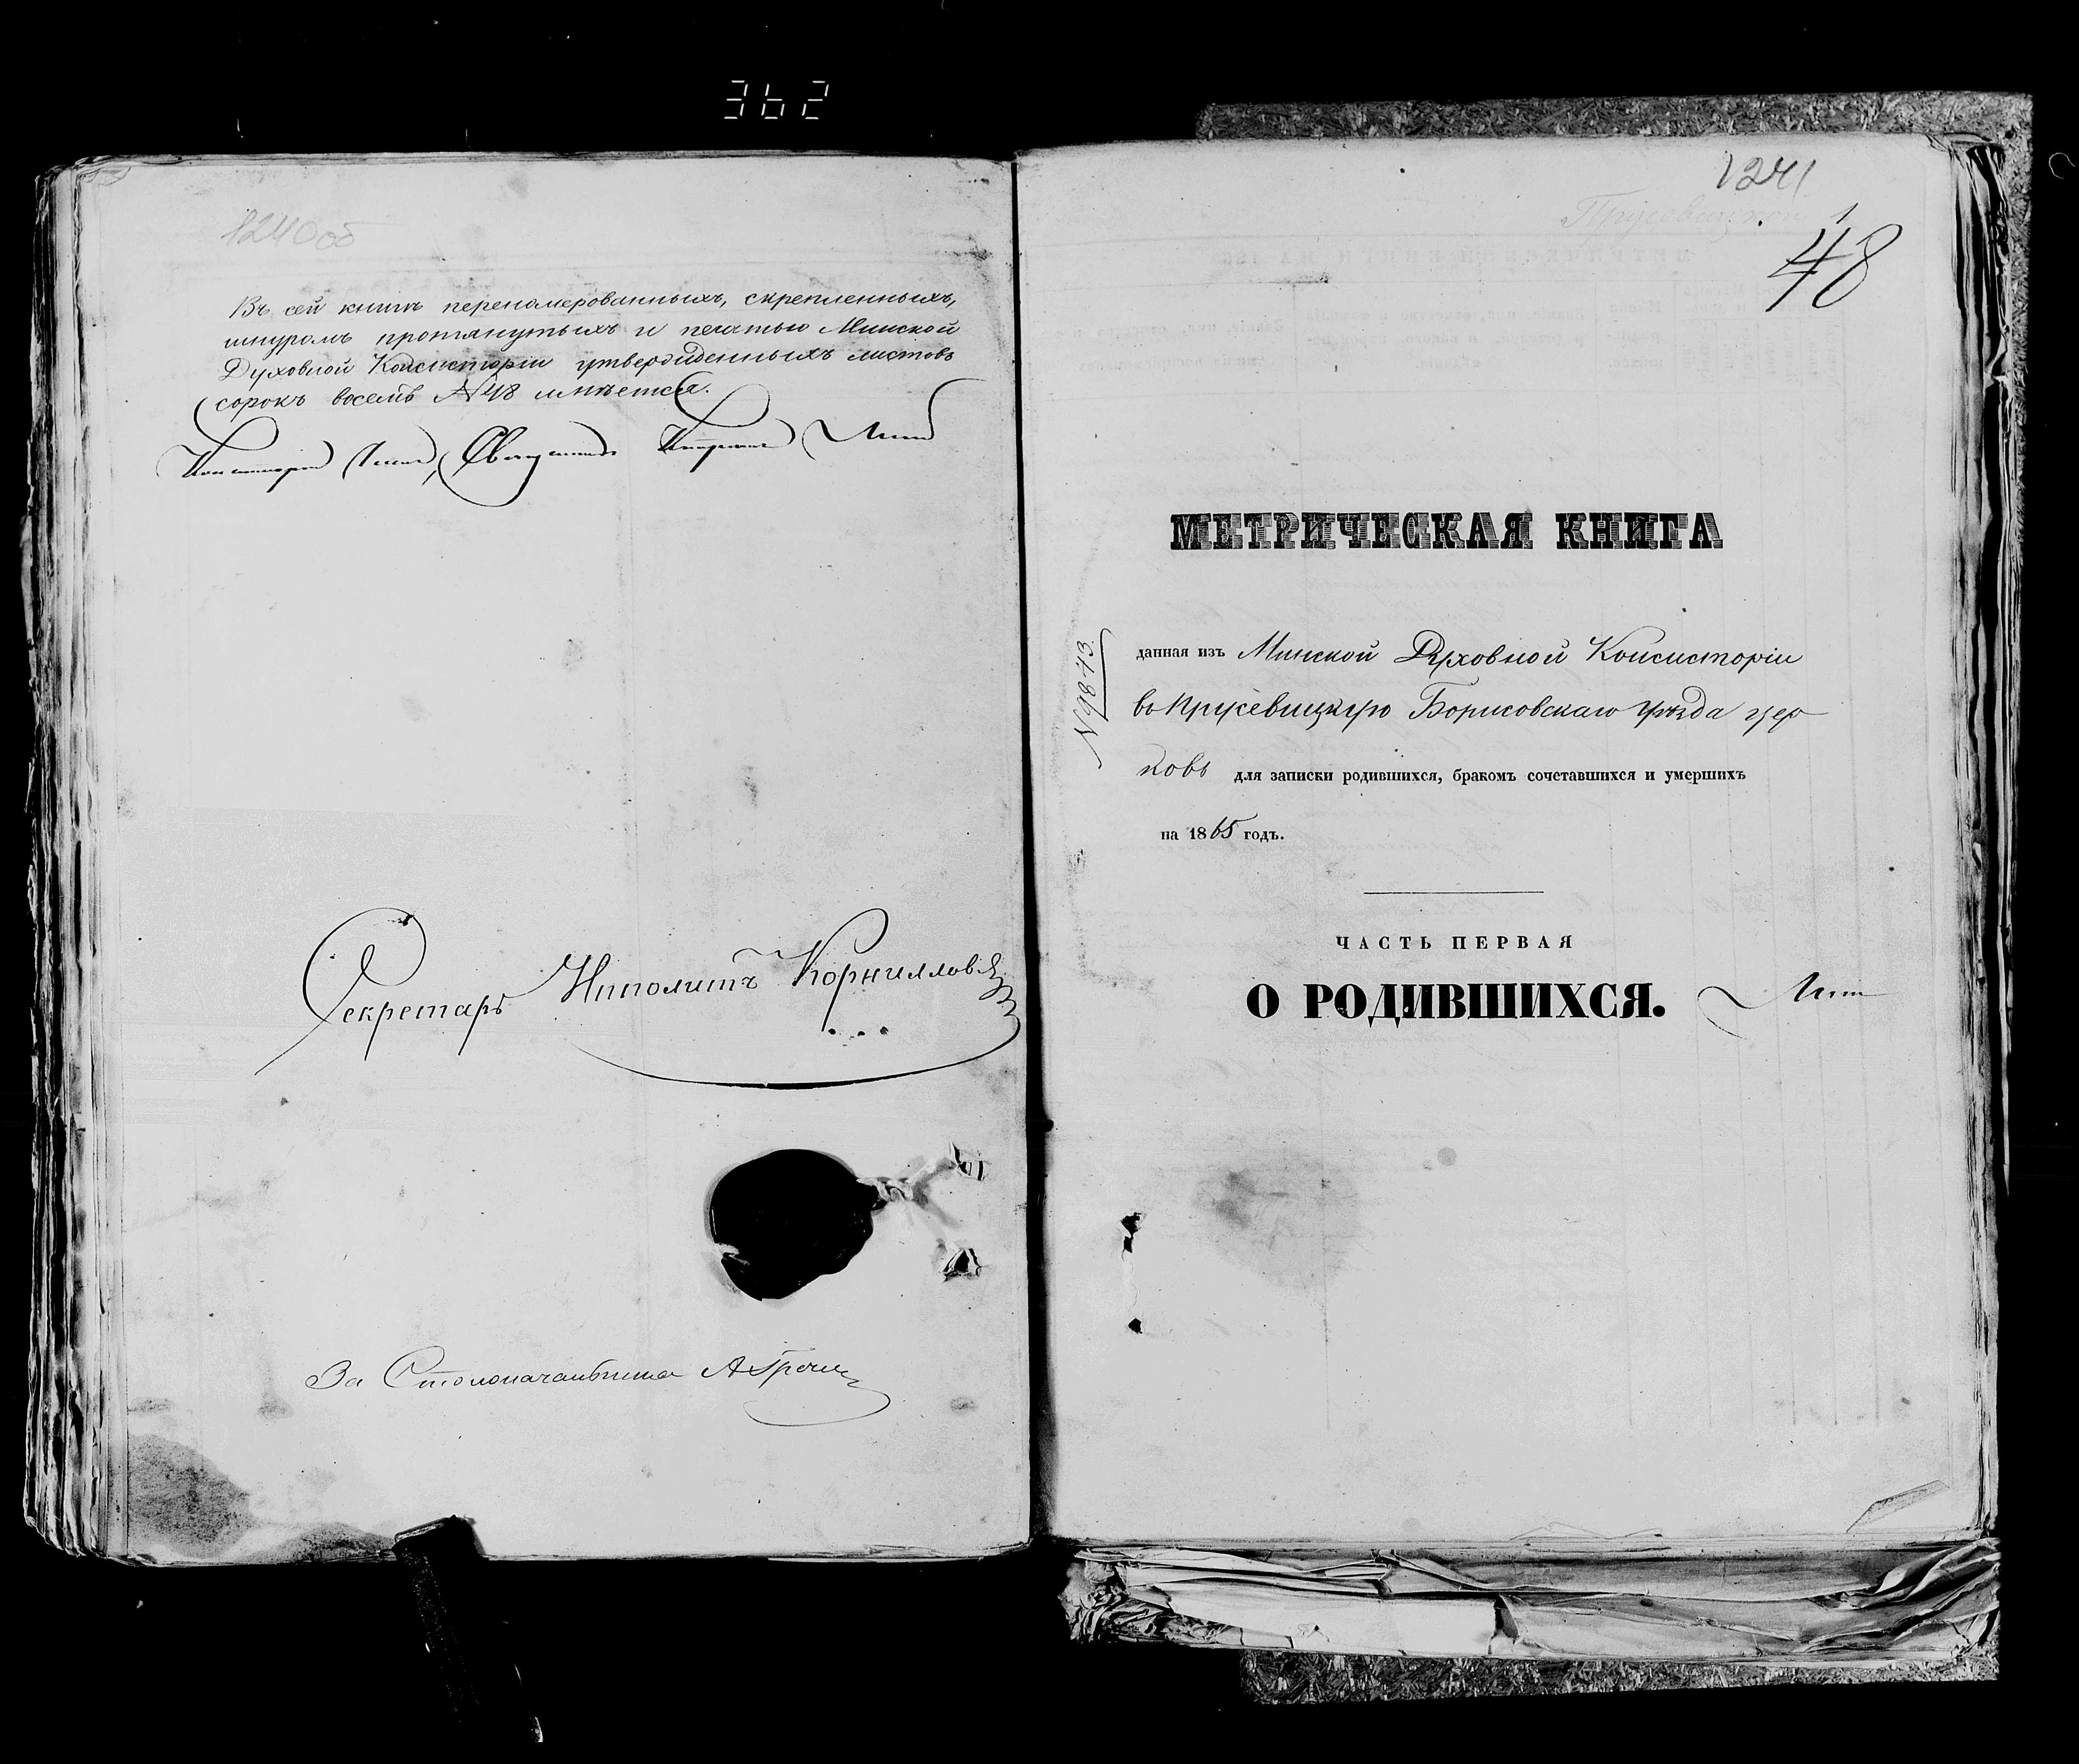 362
1240об
Въ сей книгѣ перенумерованныхъ, скрепленныхъ,
шнуромъ протянутыхъ и печатью Минской
Духовной Консисторіи утвержденныхъ листовъ
сорокъ восемь №48 имѣется.
Священникъ
Секретарь Иполитъ Корнилловъ
За Столоначальника
1241
Прусевицкой
1
48
МЕТРИЧЕСКАЯ КНИГА
№9843
данная изъ Минской Духовной Консисторіи
въ Прусевицкую Борисовскаго уѣзда цер
ковь для записки родившихся, бракомъ сочетавшихся и умершихъ
на 1865 годъ.
ЧАСТЬ ПЕРВАЯ
О РОДИВШИХСЯ.